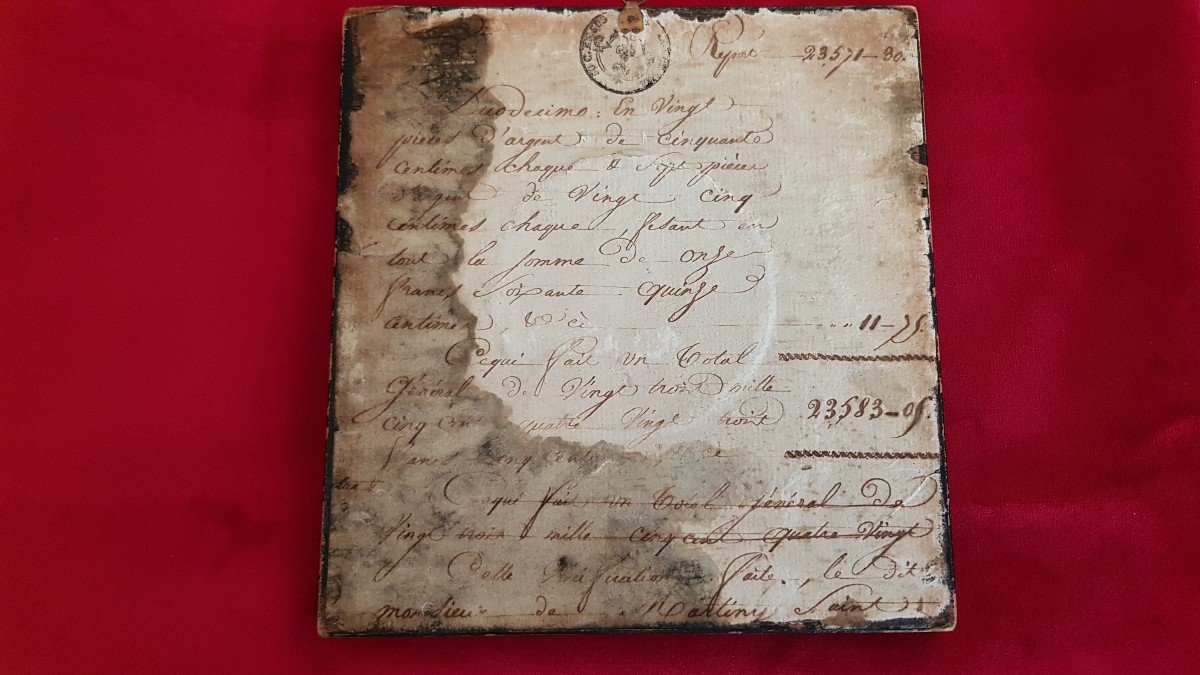 Report 23,571-30.
Duodesimo: En Vingt
pièces d'argent de cinquante
centimes chaque & sept pièces
d'argent de Vingt cinq
centimes chaque, fesant en
tout la somme de onze
francs soixante quinze
centimes, &ci 11-75.
Cequi fait un Total
Général de Vingt trois mille
cinq cent quatre Vingt trois 23,583-05.
francs cinq
Cequi fait un Total Général de
Vingt trois mille cinq cent quatre Vingt
Cette vérification faite, le dit
monsieur de Martiny Saint